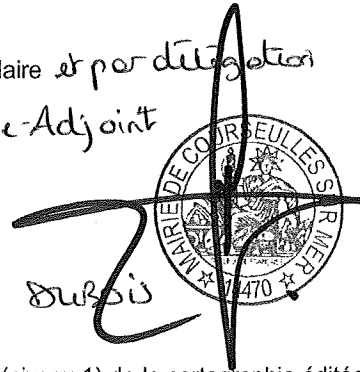 laire et par délégation
e-Adjoint
MAIRIE DE COURSEULLES S/R MER
14470
DUBOIS
(niveau 1) de la cartographie édité